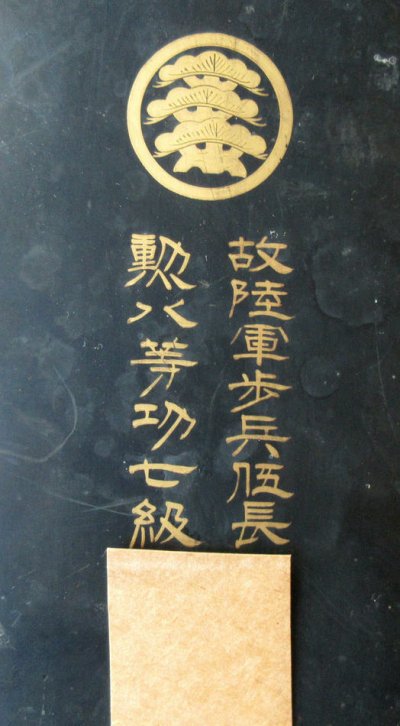 故陸軍歩兵伍長
勲八等功七級